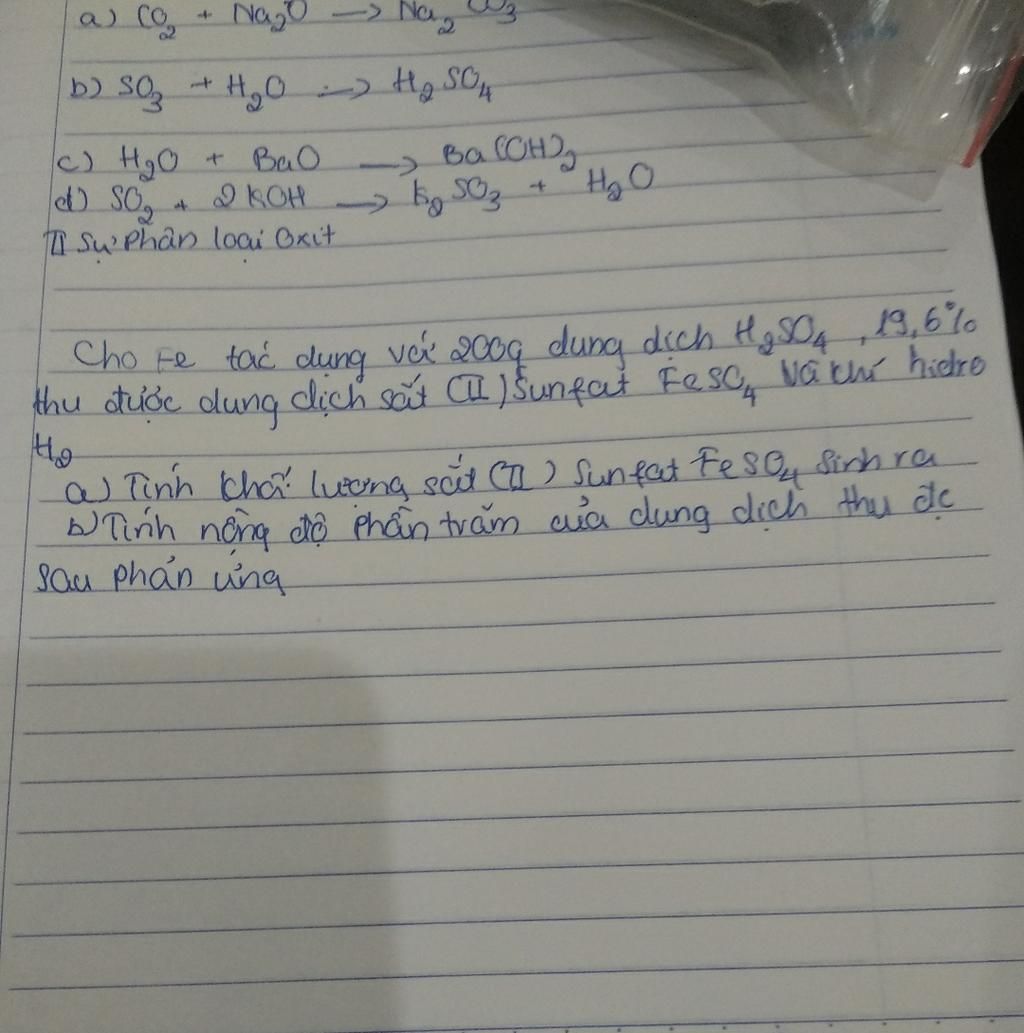 a) CO₂ + Na₂O → Na₂CO₃
b) SO₃ + H₂O → H₂SO₄
c) H₂O + BaO → Ba(OH)₂
d) SO₂ + 2KOH → K₂SO₃ + H₂O
II Sự phân loại Oxit
Cho Fe tác dụng với 200g dung dịch H₂SO₄, 19,6%
thu được dung dịch sắt (II) Sunfat FeSO₄ Và khí hidro
H₂
a) Tính khối lượng sắt (II) Sunfat FeSO₄ Sinh ra
b) Tính nồng độ phần trăm của dung dịch thu đc
sau phản ứng